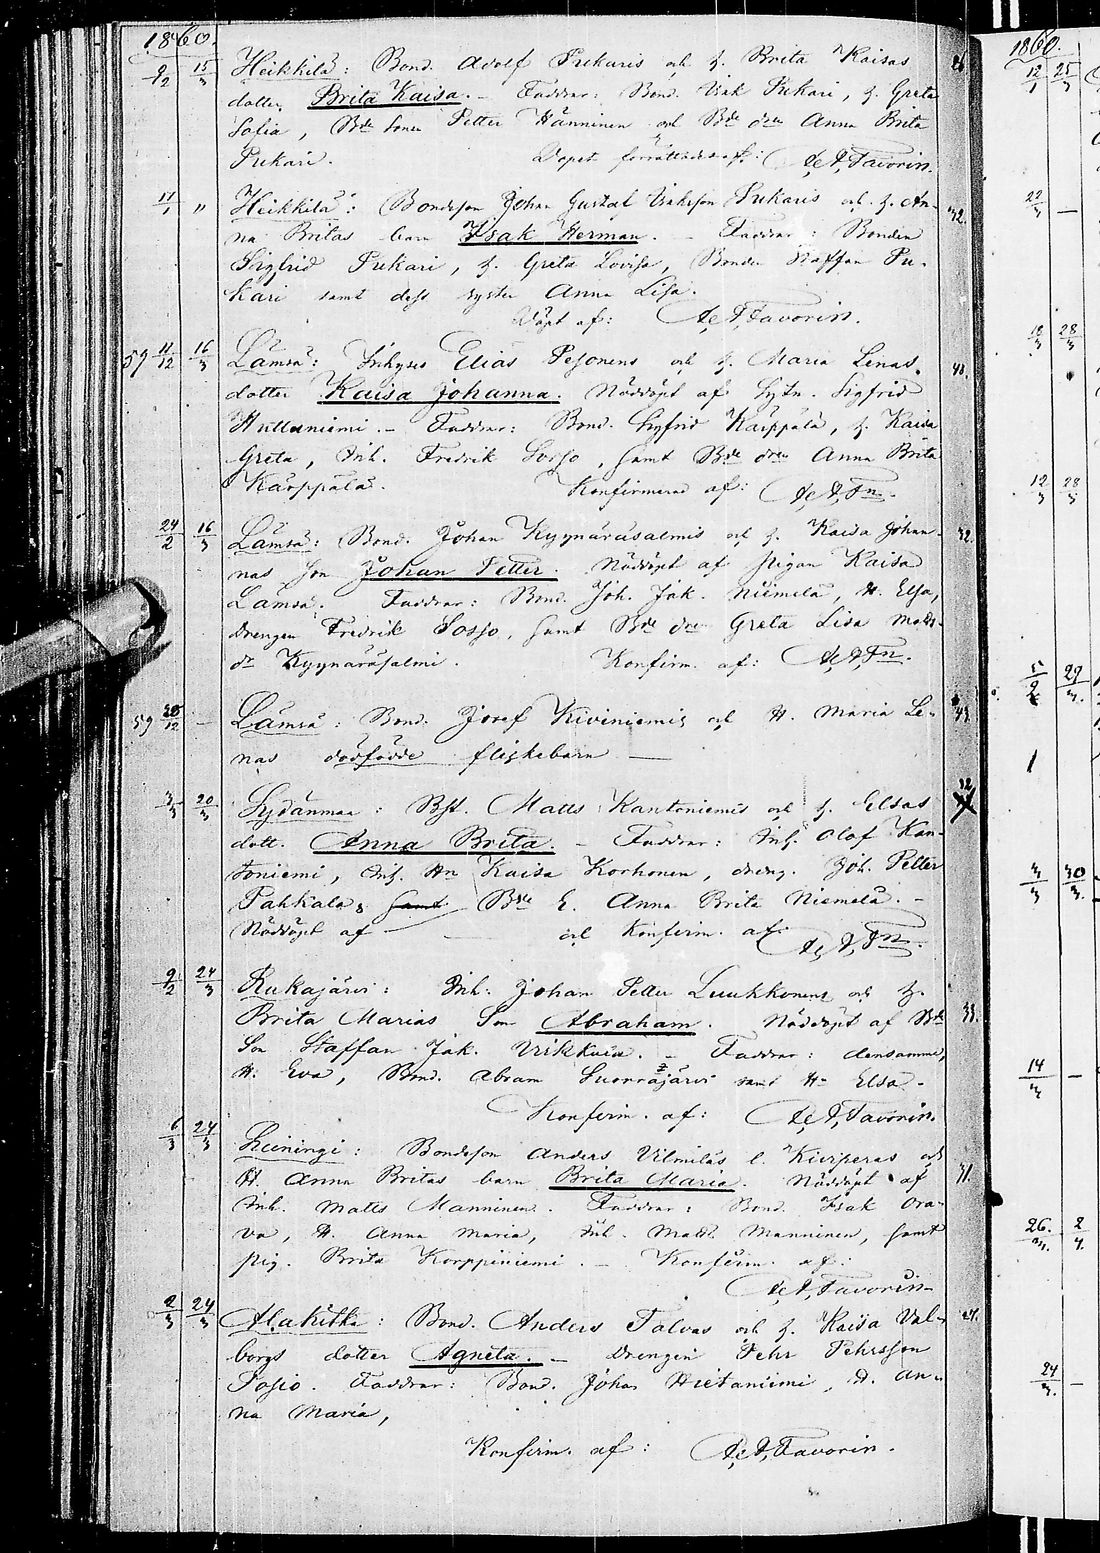 1860.
9/2 15/3 Heikkilä: Bond. Adolf Pukaris och h. Brita Kaisas 26
dotter Brita Kaisa. – Faddrar: Bond. Isak Pukari, h. Greta
Sofia, Bde Sonen Petter Hänninen och Bde dren Anna Brita
Pukari. Dopet förrättadt af: A. A. Favorin.
11/1 " Heikkilä: Bondeson Johan Gustaf Isaksson Pukaris och h. An- 32.
na Britas barn Isak Herman. – Faddrar: Bonden
Sigfrid Pukari, h. Greta Lovisa, Bonden Staffan Pu-
kari samt dess syster Anna Lisa.
Döpt af: A. A. Favorin.
59 11/12 16/3 Lämsä: Inhyses Elias Pesonens och h. Maria Lenas 40.
dotter Kaisa Johanna. Nöddöpt af Sytn. Sigfrid
Hultaniemi. – Faddrar: Bond. Sigfrid Karppala, h. Kaisa
Greta, Inh. Fredrik Sosso, samt Bde dren Anna Brita
Karppala. Konfirmerad af: A. A. Fn.
24/2 16/3 Lämsä: Bond. Johan Kyynäräsalmis och h. Kaisa Johan- 32.
nas son Johan Petter. Nöddöpt af pigan Kaisa
Lämsä. Faddrar: Bond. Joh. Jak. Niemelä, H. Elsa,
drengen Fredrik Sosso, samt Bde dren Greta Lisa Matts-
dr Kyynäräsalmi. Konfirm. af: A. A. Fn.
59 30/12 – Lämsä: Bond. Josef Kiviniemis och H. Maria Le- 43.
nas dödfödde flickebarn —
3/3 20/3 Sydänmaa: Bst. Matts Kantoniemis och h. Elsas 32
dott. Anna Brita. – Faddrar: Inh. Olof Kan-
toniemi, Inh. Hn Kaisa Korhonen, dreng. Joh. Petter
Pahkala, samt Bde E. Anna Brita Niemelä. –
Nöddöpt af — och Konfirm. af: A. A. Fn.
9/2 24/3 Kukajärvi: Inh. Johan Petter Luukkonens och h. 33.
Brita Marias Son Abraham. Nöddöpt af Bde
Son Staffan Jak. – Faddrar: densamme,
H. Eva, Bond. Abram Suorrajärvi samt Hn Elsa.
Konfirm. af: A. A. Favorin.
6/3 24/3 Heiningi: Bondeson Anders Vilmiläs l. Kiviperas och 31.
H. Anna Britas barn Brita Maria. Nöddöpt af
Inh. Matts Manninen. Faddrar: Bond. Isak Ora-
va, H. Anna Maria, Inh. Matts Manninen, samt
pig. Brita Korppiniemi. – Konfirm. af:
A. A. Favorin
2/3 24/3 Alakitka: Bond. Anders Talvas och h. Kaisa Val- 24.
borgs dotter Agneta. – Drengen Pehr Pehrsson
Posio. Faddrar: Bond. Johan Hietaniemi, H. An-
na Maria,
Konfirm. af: A. A. Favorin.
1860.
12/1 25/3
22/3 —
18/3 28/3
12/3 28/3
5/2 29/3
3/3 30/3
14/3 —
26/3 2/4
24/3 —